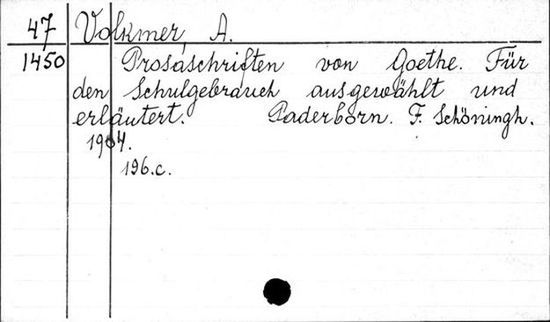 47 Volkmer, A.
1450 Prosaschriften von Goethe. Für
den Schulgebrauch ausgewählt und
erläutert. Paderborn. F. Schöningh.
1904.
196.c.